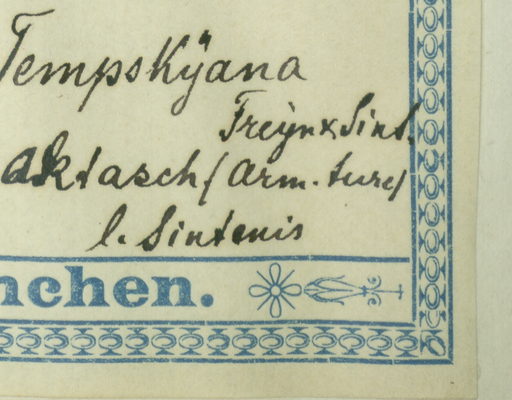 Tempskÿana
Freÿn & Sint.
aktasch (Arm. turc)
l. Sintenis
nchen.